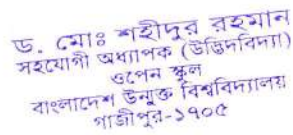 ড. মোঃ শহীদুর রহমান
সহযোগী অধ্যাপক (উদ্ভিদবিদ্যা)
ওপেন স্কুল
বাংলাদেশ উন্মুক্ত বিশ্ববিদ্যালয়
গাজীপুর-১৭০৫